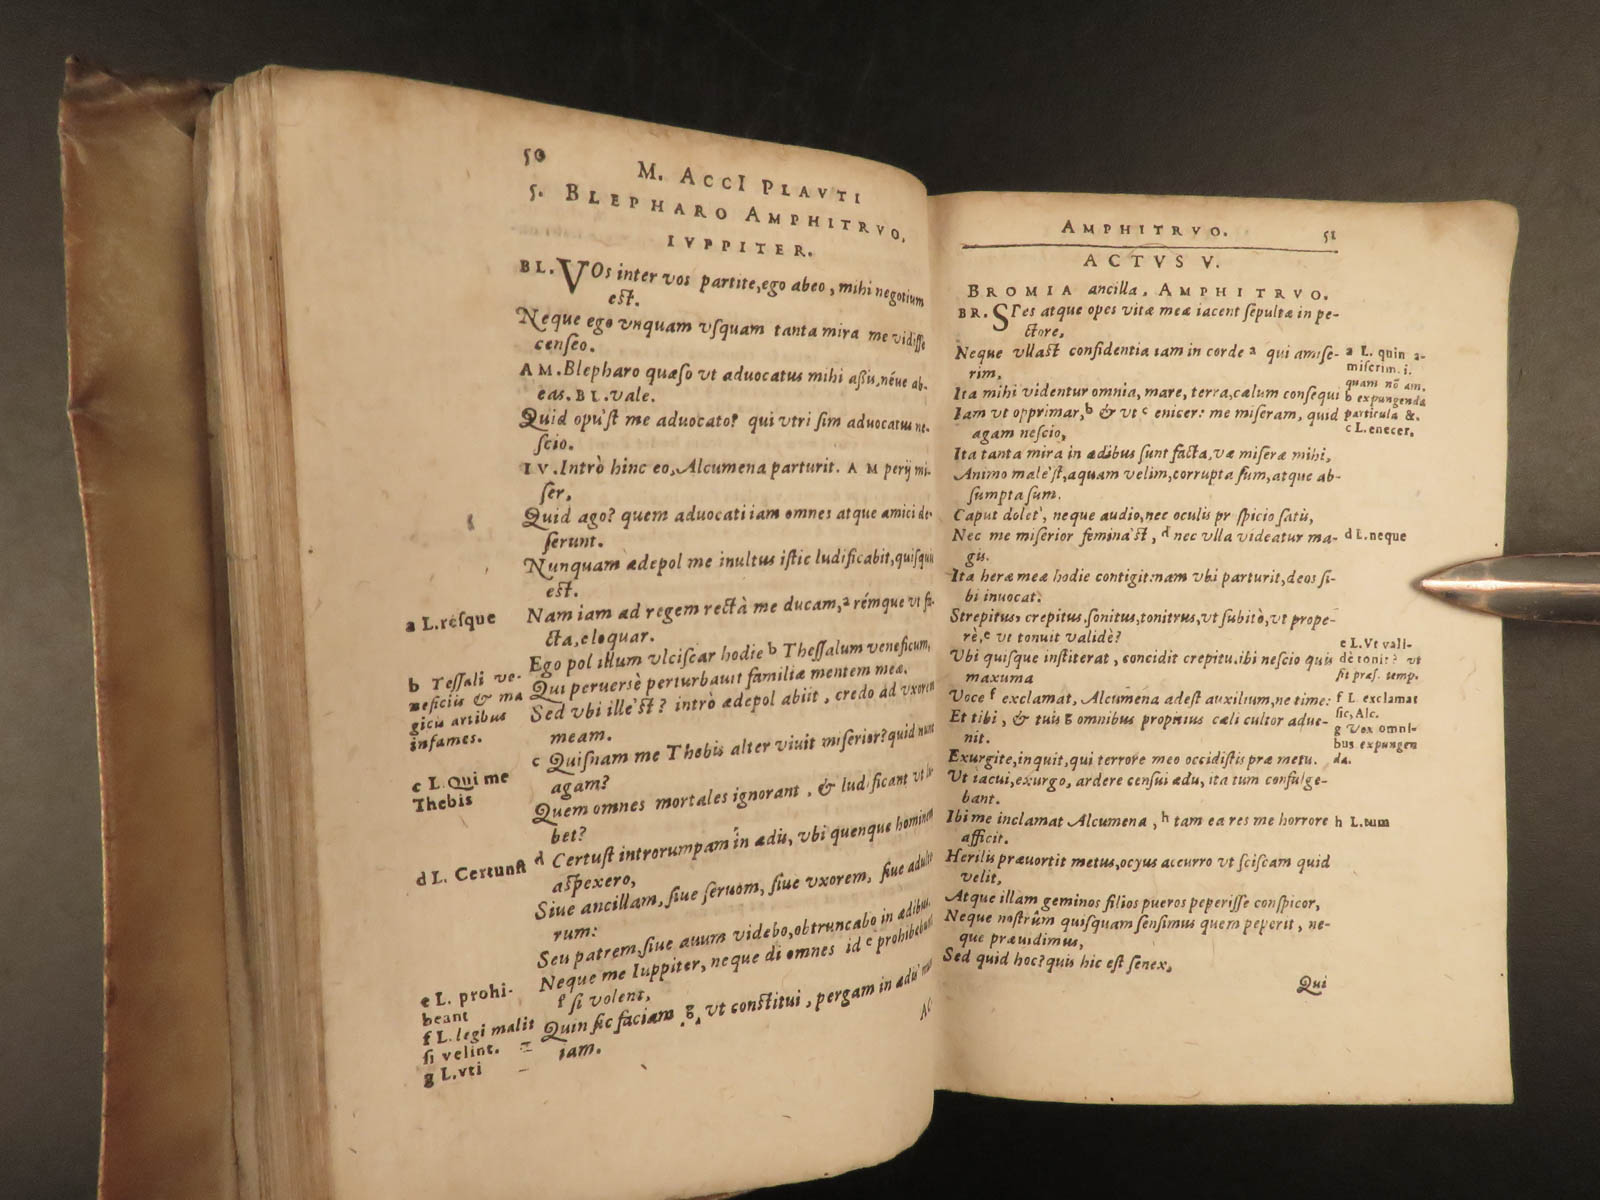 50
M. ACCI PLAVTI
5. BLEPHARO AMPHITRVO,
IVPPITER.
BL. VOs inter vos partite, ego abeo, mihi negotium
est.
Neque ego vnquam vsquam tanta mira me vidisse
censeo.
AM. Blepharo quæso vt aduocatus mihi assis, néue ab-
eas. BL. vale.
Quid opu'st me aduocato? qui vtri sim aduocatus ne-
scio.
IV. Intrò hinc eo, Alcumena parturit. AM perij mi-
ser,
Quid ago? quem aduocati iam omnes atque amici de-
serunt.
Nunquam ædepol me inultus istic ludificabit, quisquis
est.
a L. résque
Nam iam ad regem rectà me ducam, a rémque vt fa-
cta, eloquar.
Ego pol illum vlciscar hodie b Thessalum veneficum,
b Tessali ve-
neficiis & ma
gicis artibus
infames.
Qui peruersè perturbauit familiæ mentem meæ.
Sed vbi ille'st? intrò ædepol abiit, credo ad vxorem
meam.
c L. Qui me
Thebis
c Quisnam me Thebis alter viuit miserior? quid nunc
agam?
Quem omnes mortales ignorant, & ludificant vt lu-
bet?
d L. Certunst
d Certust introrumpam in ædis, vbi quenque hominem
aspexero,
Siue ancillam, siue seruom, siue vxorem, siue adulte
rum:
Seu patrem, siue auum videbo, obtruncabo in ædibus.
Neque me Iuppiter, neque di omnes id e prohibebunt
e L. prohi-
beant
f si volent,
f L. legi malit
si velint.
g L. vti
Quin sic faciam g vt constitui, pergam in ædis
iam.
AMPHITRVO. 51
ACTVS V.
BROMIA ancilla, AMPHITRVO.
BR. SPes atque opes vitæ meæ iacent sepultæ in pe-
ctore,
Neque vllast confidentia iam in corde a qui amise-
rim,
a L. quin a-
miserim. i.
quam nō am.
Ita mihi videntur omnia, mare, terra, cælum consequi
b expungenda
particula &.
Iam vt opprimar, b & vt c enicer: me miseram, quid
agam nescio,
c L. enecer.
Ita tanta mira in ædibus sunt facta, væ miseræ mihi,
Animo male'st, aquam velim, corrupta sum, atque ab-
sumpta sum.
Caput dolet, neque audio, nec oculis pr spicio satis,
Nec me miserior femina'st, d nec vlla videatur ma-
gis.
d L. neque
Ita heræ meæ hodie contigit: nam vbi parturit, deos si-
bi inuocat.
Strepitus, crepitus, sonitus, tonitrus, vt subitò, vt prope-
rè, e vt tonuit validè?
e L. Vt vali-
dè tonit? vt
sit præs. temp.
Vbi quisque institerat, concidit crepitu. ibi nescio quis
maxuma
Voce f exclamat, Alcumena adest auxilium, ne time:
f L exclamat
sic, Alc.
Et tibi, & tuis g omnibus propitius cæli cultor adue-
nit.
g Vox omni-
bus expungen
da.
Exurgite, inquit, qui terrore meo occidistis præ metu.
Vt iacui, exurgo, ardere censui ædis, ita tum confulge-
bant.
Ibi me inclamat Alcumena, h tam ea res me horrore
afficit.
h L. tum
Herilis præuortit metus, ocyus accurro vt sciscam quid
velit,
Atque illam geminos filios pueros peperisse conspicor,
Neque nostrûm quisquam sensimus quem peperit, ne-
que præuidimus,
Sed quid hoc? quis hic est senex,
Qui